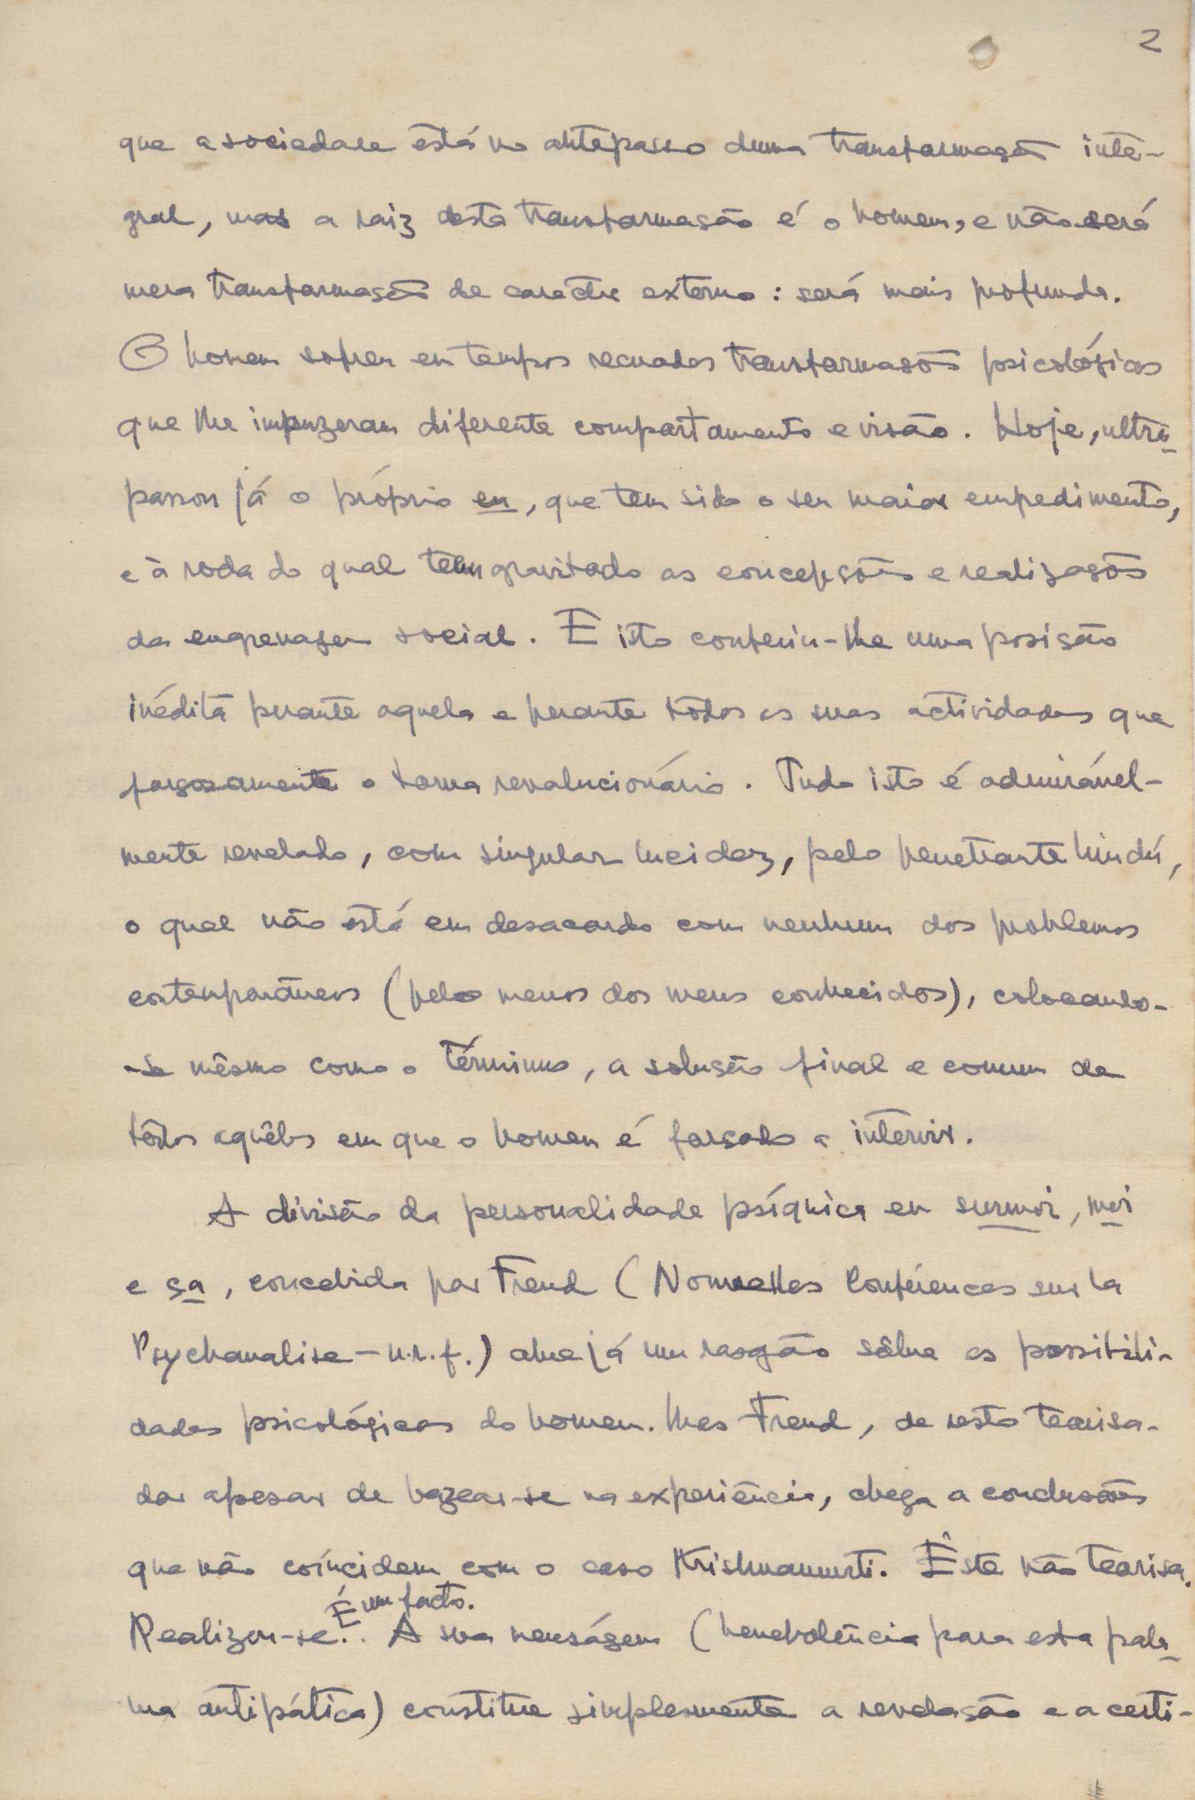 2
que a sociedade está no antepasso duma transformação inte-
gral, mas a raiz desta transformação é o homem, e não será
mera transformação de carácter externo: será mais profunda.
O homem sofreu em tempos recuados transformações psicológicas
que lhe impuzeram diferente comportamento e visão. Hoje, ultra-
passou já o próprio eu, que tem sido o seu maior empedimento,
e à roda do qual tem gravitado as concepções e realizações
da engrenagem social. E isto conferiu-lhe uma posição
inédita perante aquela e perante tôdas as suas actividades que
forçosamente o torna revolucionário. Tudo isto é admirável-
mente revelado, com singular lucidez, pelo penetrante hindú,
o qual não está em desacordo com nenhum dos problemas
contemporâneos (pelo menos dos meus conhecidos), colocando-
-se mêsmo como o términus, a solução final e comum de
todos aquêles em que o homem é forçado a intervir.
A divisão da personalidade psíquica em surmoi, moi
e ça, concebida por Freud (Nouvelles Conférences sur la
Psychanalise - n.r.f.) abre já um rasgão sôbre as possibili-
dades psicológicas do homem. Mas Freud, de resto teorisa-
dor apesar de bazear-se na experiência, chega a conclusões
que não coíncidem com o caso Krishnamurti. Êste não teorisa.
Realizou-se. É um facto. A sua menságem (benevolência para esta pala-
vra antipática) constitue simplesmente a revelação e a certi-